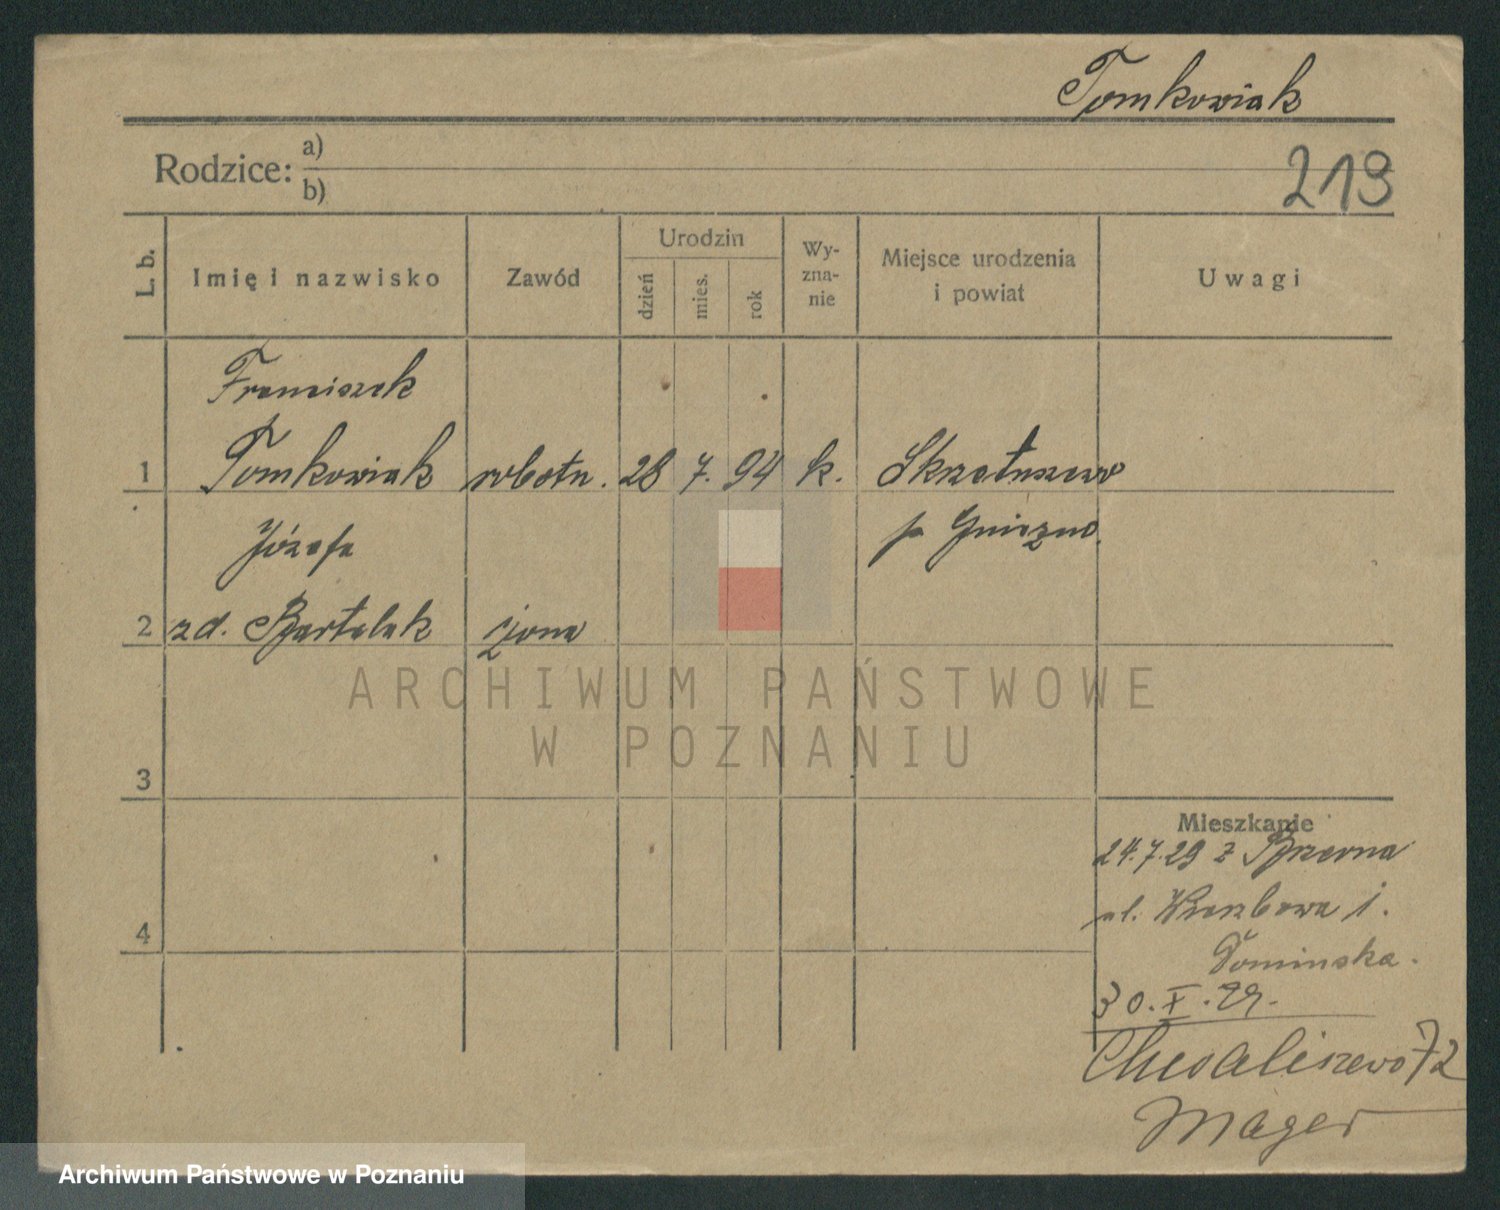 Tomkowiak
Rodzice: a)
b)
219
L. b.
Imię i nazwisko
Zawód
Urodzin
dzień
mies.
rok
Wy-
zna-
nie
Miejsce urodzenia
i powiat
Uwagi
Franciszek
1 Tomkowiak robotn. 28 7. 94 k. Skrzetuszewo
p Gniezno.
Józefa
2 zd. Bartolak żona
3
4
Mieszkanie
24.7.29 z
ul. Wierzbowa 1.
Tominska.
30.X.29.
Chwaliszewo 72
Mager
ARCHIWUM PAŃSTWOWE
W POZNANIU
Archiwum Państwowe w Poznaniu